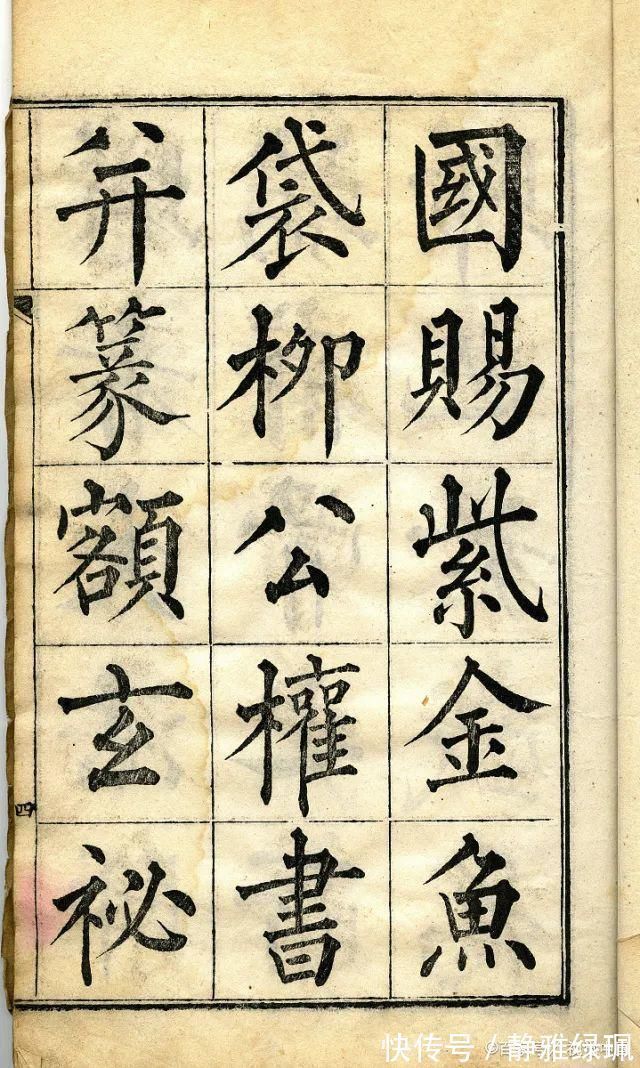 國賜紫金魚
袋柳公權書
并篆額玄祕
四
快传号/静雅绿珮